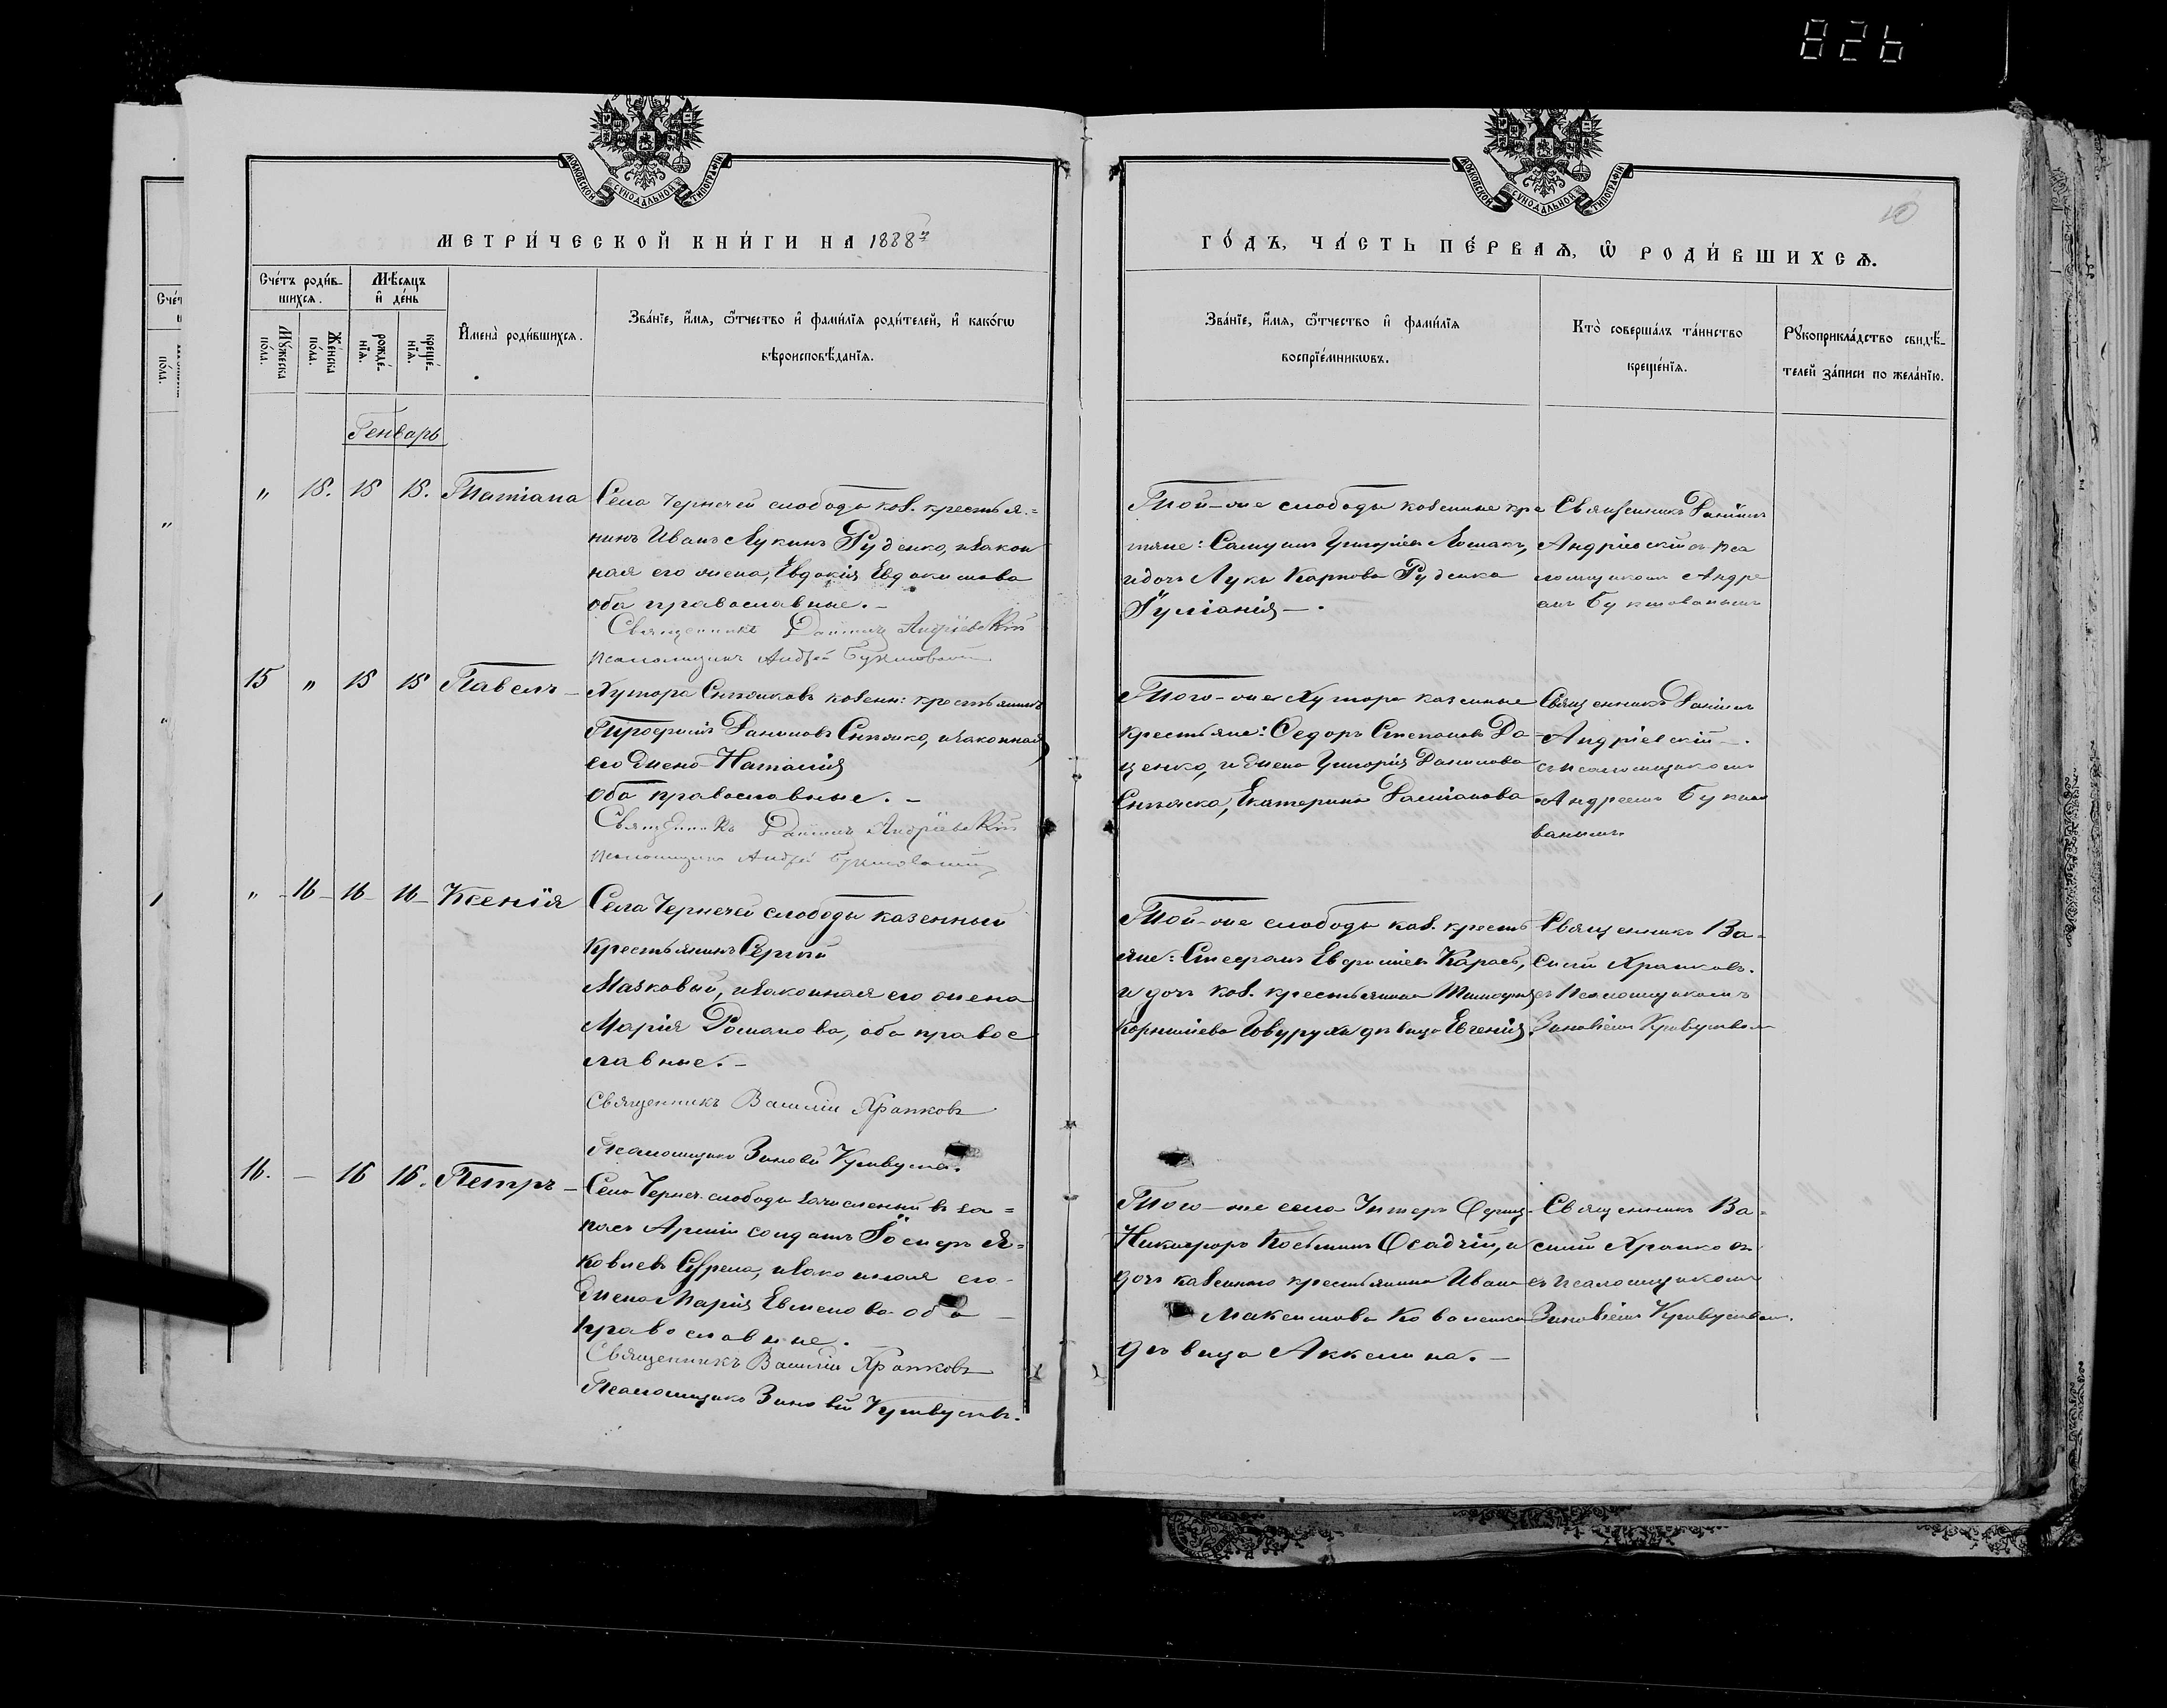 826
МОСКОВСКОЙ СѴНОДАЛЬНОЙ ТИПОГРАФІИ
МОСКОВСКОЙ СѴНОДАЛЬНОЙ ТИПОГРАФІИ
10
МЕТРИ́ЧЕСКОЙ КНИ́ГИ НА 1888й
ГО́ДЪ, ЧА́СТЬ ПЕ́РВАѦ, Ѡ҆ РОДИ́ВШИХСѦ.
Сче́тъ роди́в-
шихсѧ.
Мѣ́сѧцъ
и҆ де́нь
Мꙋ́жеска
по́ла.
Же́нска
по́ла.
рожде́-
нїѧ.
креще́-
нїѧ.
И҆мена̀ роди́вшихсѧ.
Зва́нїе, и҆́мѧ, ѻ҆́тчество и҆ фами́лїѧ роди́телей, и҆ како́гѡ
вѣроисповѣ́данїѧ.
Зва́нїе, и҆́мѧ, ѻ҆́тчество и҆ фами́лїѧ
воспрїе́мникѡвъ.
Кто̀ соверша́лъ та́инство
креще́нїѧ.
Рꙋкоприкла́дство свидѣ́-
телей за́писи по жела́нїю.
Генварь
" 15. 15 15. Татіана
Села Чернечей слободы каз. крестья-
нинъ Иванъ Лукинъ Руденко, и закон
ная его жена, Евдокія Евдокимова
оба православные.-
Священникъ Даніилъ Андріевскій
псаломщикъ Андрей
Той-же слободы казенные кре
тяне: Самуилъ Григоріевъ
и дочь Луки Карпова Руденка
Іуліанія-.
Священникъ Даніилъ
Андріевскій съ пса
ломщикомъ Андре
емъ
15 " 15 15 Павелъ-
Хутора казенн: крестьянинъ
Трофимъ Даниловъ и законная
его жена Наталія
оба православные.-
Священникъ Даніилъ Андріевскій
псаломщикъ Андрей
Того-же Хутора казенные
крестьяне: Ѳедоръ Степановъ Да-
ценко, и жена Григорія Данилова
Екатерина Даміанова
Священникъ Даніилъ
Андріевскій-.
съ псаломщикомъ
Андреемъ
" 16- 16- 16- Ксенія
Села Чернечей слободы казенный
крестьянинъ Сергій
Мачковый, и законная его жена
Марія Романова, оба правос
лавные.-
Священникъ Василій Храпковъ
Псаломщикъ Зиновій
Той-же слободы каз. кресть
яне: Стефанъ Евфиміевъ Карась,
и дочь каз. крестьянина
Корниліева дѣвица Евгенія
Священникъ Ва-
силій Храпковъ.
съ псаломщикомъ
Зиновіемъ
16. - 16 16. Петръ-
Села Чернеч. слободы зачисленный въ за-
пасъ Арміи солдатъ Іосифъ Я-
ковлевъ и законная его
жена Марія Евменова оба
православные.
Священникъ Василій Храпковъ
Псаломщикъ Зиновій
Того-же села
Никифоръ Косьминъ Осадчій, и
дочь казеннаго крестьянина Ивана
Максимова Коваленка
дѣвица Аккелина.-
Священникъ Ва-
силій Храпковъ
съ псаломщикомъ
Зиновіемъ